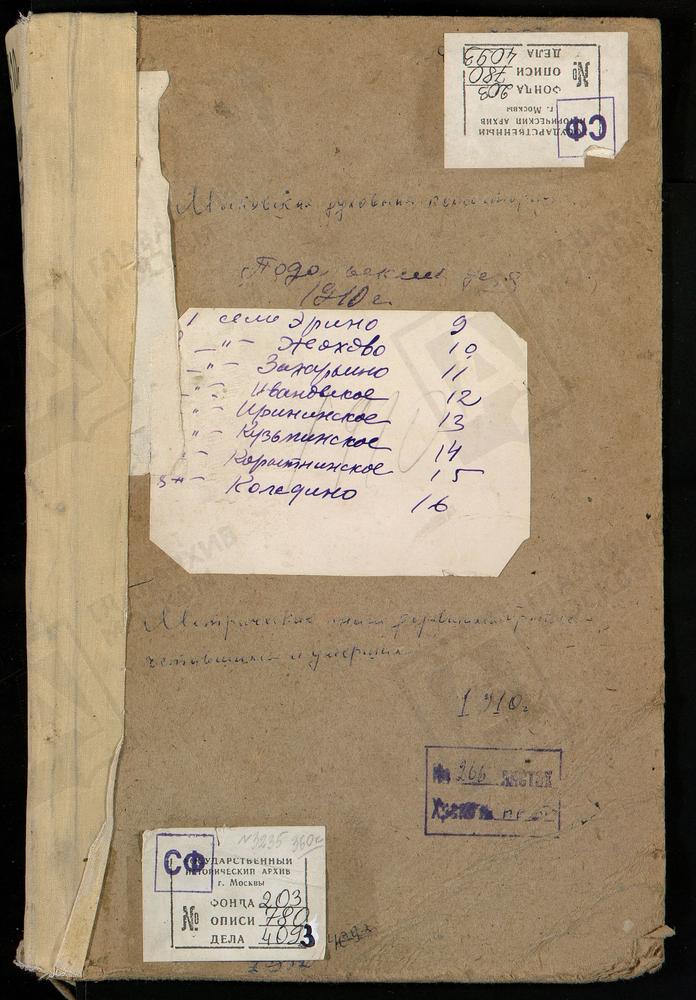 №
ФОНДА 203
ОПИСИ 780
ДЕЛА 4093
ГОСУДАРСТВЕННЫЙ
ИСТОРИЧЕСКИЙ АРХИВ
г. Москвы
СФ
Московская духовная консистория
Подольский уезд
1910 г.
1 село Ерино 9
—"— Жохово 10
—"— Захарьино 11
" — Ивановское 12
" — Ирининское 13
" — Кузьминское 14
Коростнинское 15
Коледино 16
Метрические книги родившихся, бракосо-
четавшихся и умерших
1910 г.
На 266 листах
№3235 360с
СФ
ГОСУДАРСТВЕННЫЙ
ИСТОРИЧЕСКИЙ АРХИВ
г. Москвы
№
ФОНДА 203
ОПИСИ 780
ДЕЛА 4093